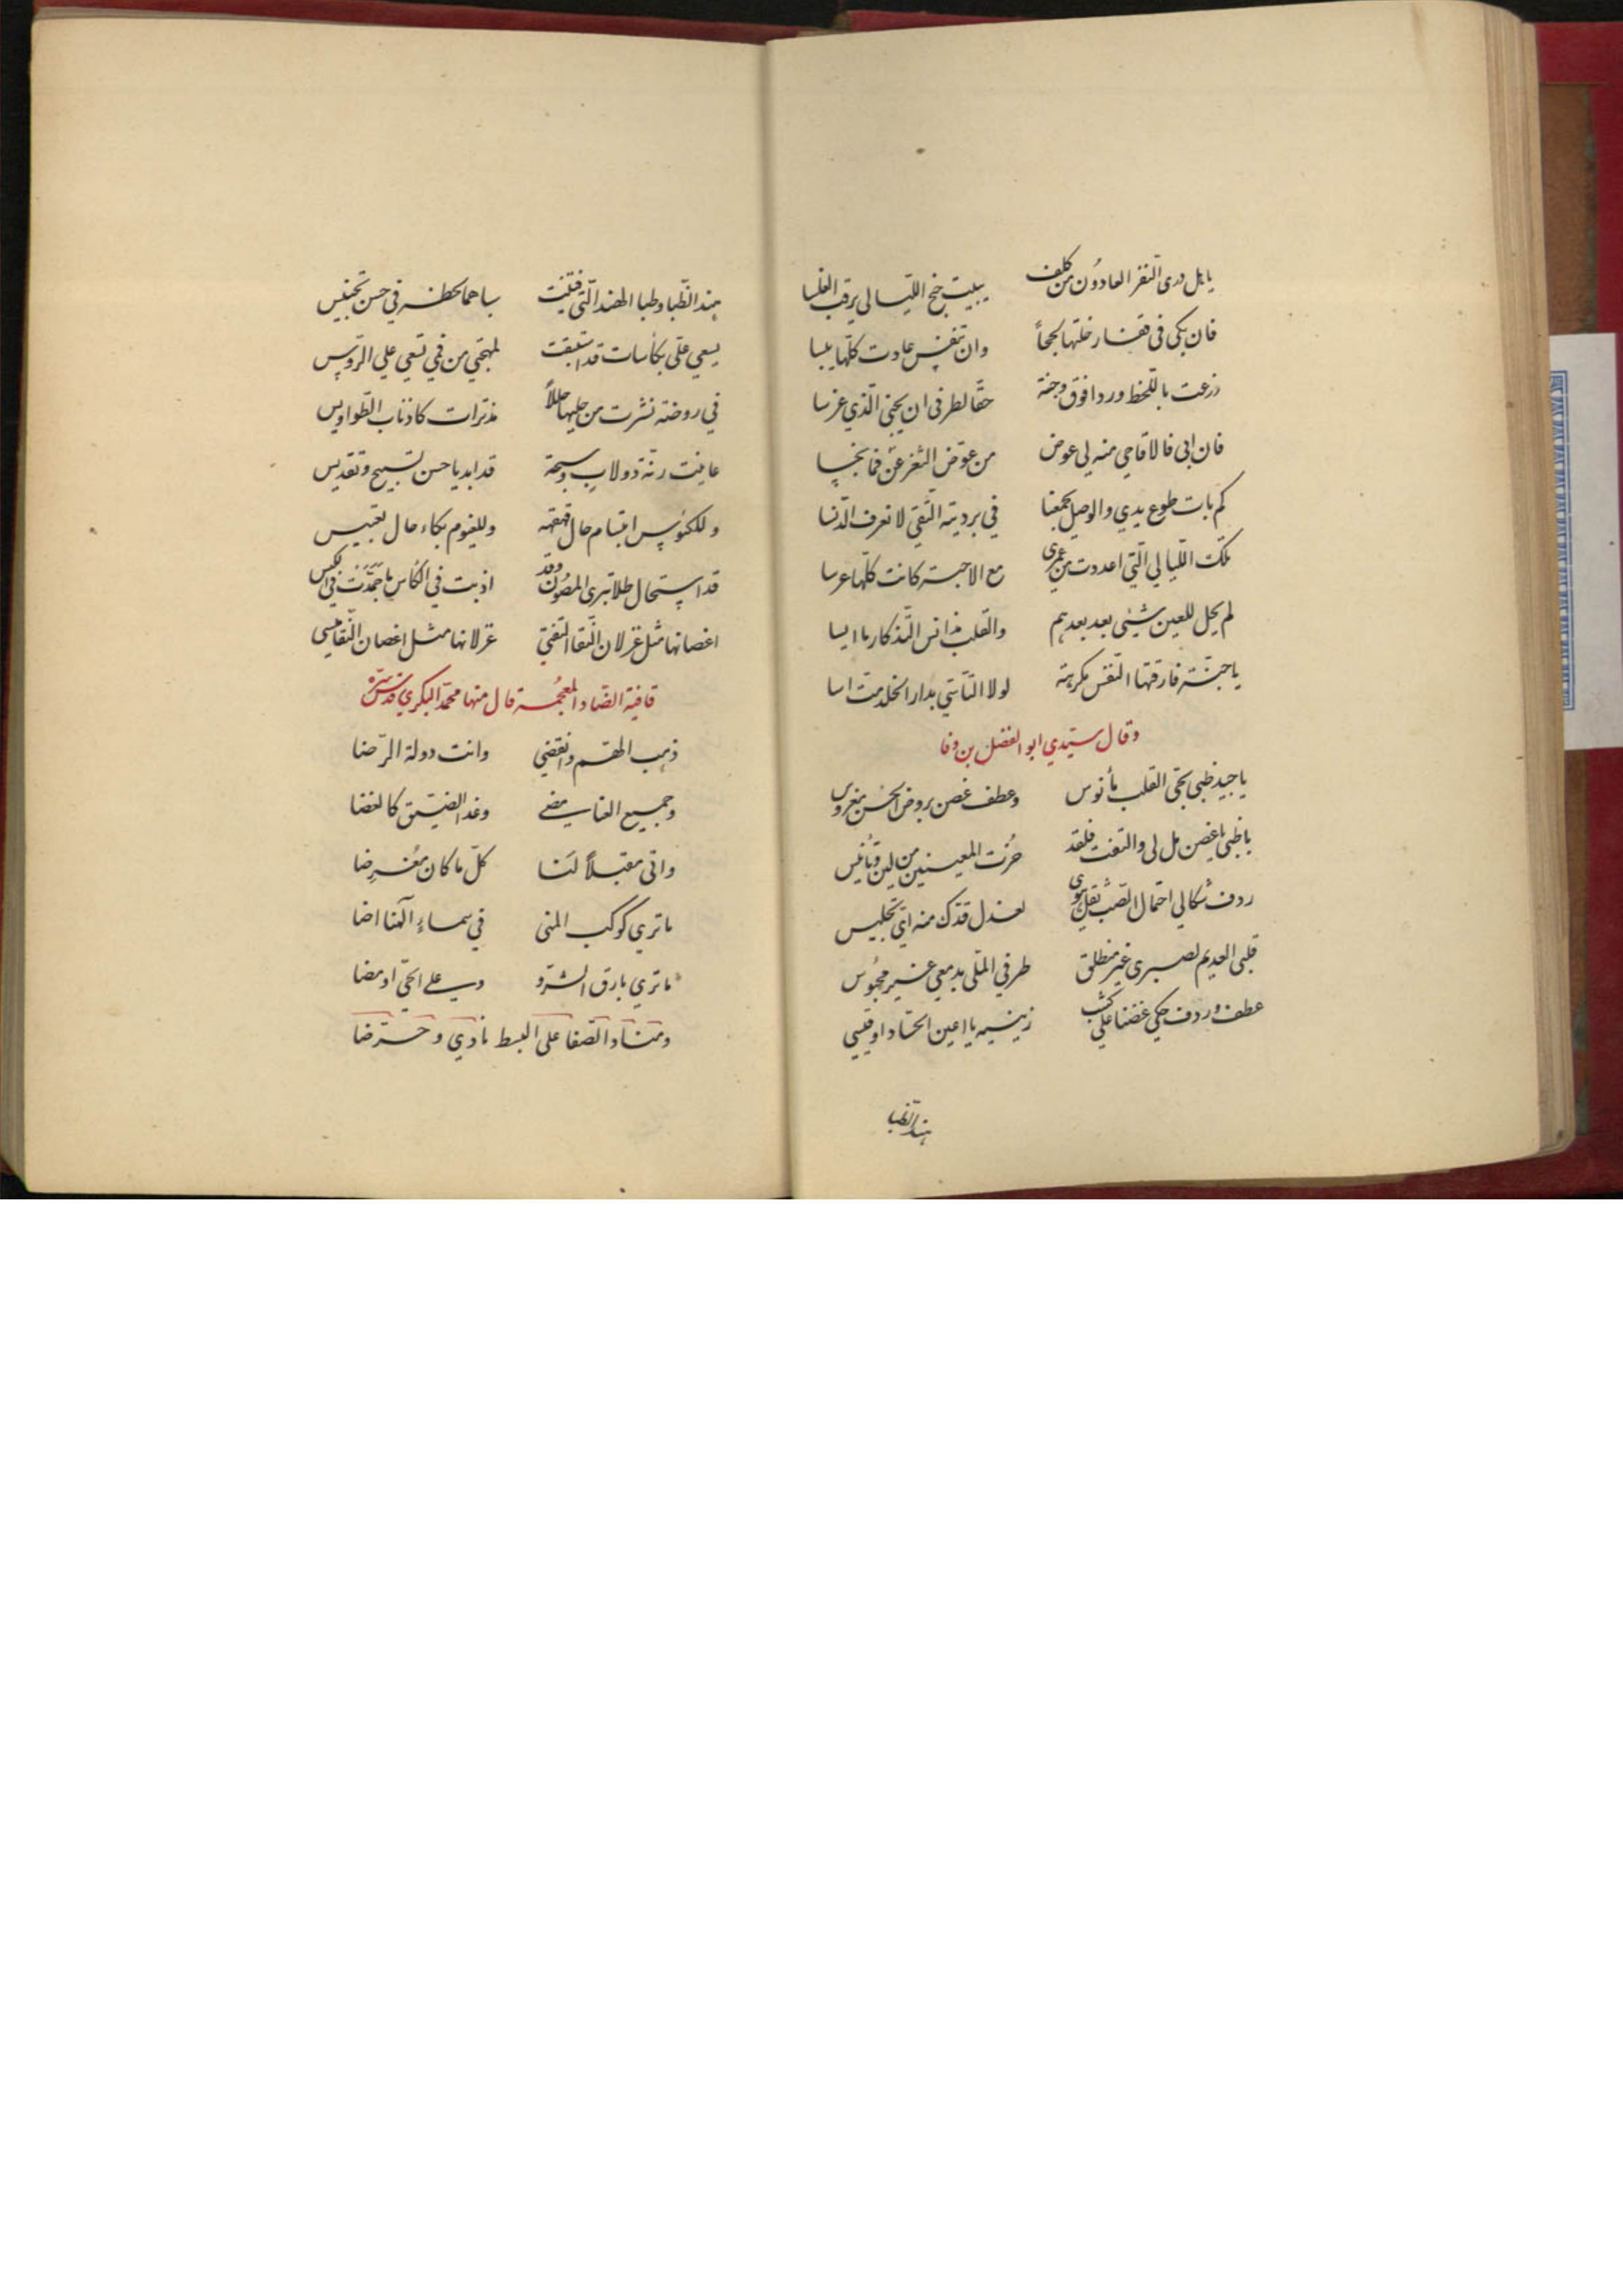 يا هل درى النفر العادون من كلف يبيت جنح الليالي يرقب الغلسا
فان بكى في قفار خلتها لججاً وان تنفس عادت كلها يبسا
زرعت باللحظ وردا فوق وجنة حقا لطرفي ان يجني الذي غرسا
فان ابى فالاقاحي منه لي عوض من عوّض الثغر عن فما بخسا
كم بات طوع يدي والوصل يجمعنا في بردية التقى لا نعرف الدنسا
تلك الليالي التي اعددت من عمري مع الاحبة كانت كلها عرسا
لم يحل للعين شيئ بعد بعدهم والقلب مذ انس التذكار ما ايسا
يا جنة فارقتها النفس مكرهة لولا التأسي بدار الخلد مت اسا
وقال سيدي ابو الفضل بن وفا
يا جيد ظبي بحي القلب مأنوس وعطف غصن بروض الحسن مغروس
يا ظبي يا غصن مل لي والتفت فلقد حُزت المعنيين من لين وتأنيس
ردف شكا لي احتمال الصب ثقل هوى لعذل قدك منه اي تجليس
قلبي العديم لصبري غير منطلق طرفي الملي بدمعي غير محبُوس
عطف وردف حكي غصنا علي كثب زينيه يا اعين الحساد او قيسي
هند الظبا
هند الظبا وظبا الهند التي فتنت سباهما لحظه في حسن تجنيس
يسعي علي بكاسات قد استبقت لمهجتي من فمي تسعي علي الروس
في روضة نشرت من حليها حللاً مذنرات كاذناب الطواويس
عاينت رنة دولاب وسبحة قد ابديا حسن تسبيح وتقديس
وللكئوس ابتسام حال قهقهة وللغيوم بكاء حال تعبيس
قد استحال طلا تبري المصون وقد اذبت في الكاس ما جمّدت في الكيس
اغصانها مثل غزلان النقا التفتي غزلانها مثل اغصان النقا ميسي
قافية الضاد المعجمة قال منها محمد البكري قدس سره
ذهب الهم وانقضي واتت دولة الرضا
وجميع العنا مضي وغدا الضيق كالفضا
واتى مقبلاً لنا كل ما كان مُعرِضا
ما تري كوكب المنى في سماءِ الهنا اضا
ما تري بارق السُرو ر علي الحي اومضا
ومناد الصفا على البسط نادي وحرّضا